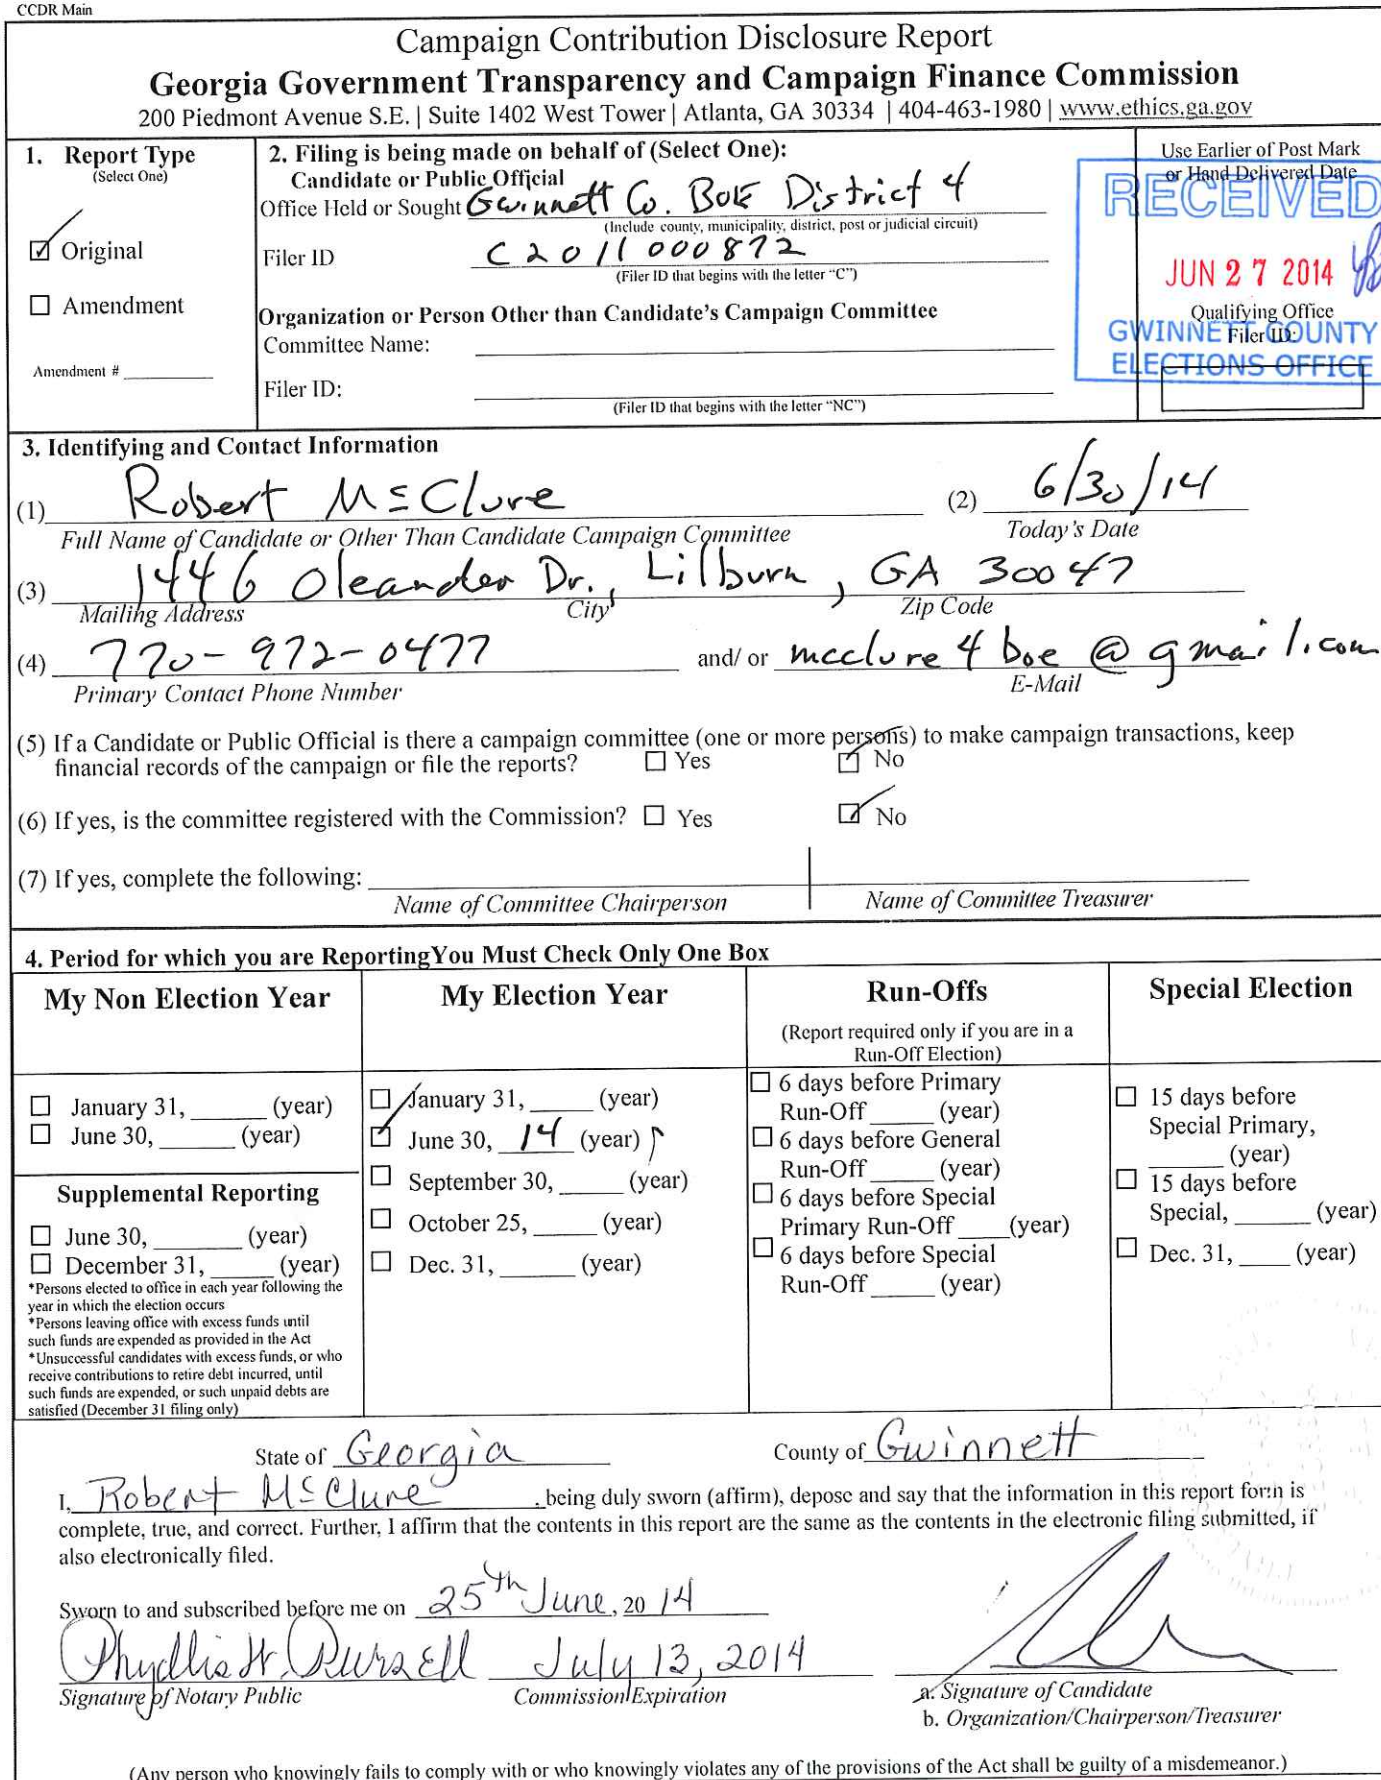 CCDR Main
Campaign Contribution Disclosure Report
Georgia Government Transparency and Campaign Finance Commission
200 Piedmont Avenue S.E. | Suite 1402 West Tower | Atlanta, GA 30334 | 404-463-1980 | www.ethics.ga.gov
1. Report Type
(Select One)
☑ Original
☐ Amendment
Amendment # ______
2. Filing is being made on behalf of (Select One):
Candidate or Public Official
Office Held or Sought Gwinnett Co. BOE District 4
(Include county, municipality, district, post or judicial circuit)
Filer ID C2011000872
(Filer ID that begins with the letter "C")
Organization or Person Other than Candidate's Campaign Committee
Committee Name: ______
Filer ID: ______
(Filer ID that begins with the letter "NC")
Use Earlier of Post Mark
or Hand Delivered Date
RECEIVED
JUN 27 2014
Qualifying Office
Filer ID:
GWINNETT COUNTY
ELECTIONS OFFICE
3. Identifying and Contact Information
(1) Robert McClure (2) 6/30/14
Full Name of Candidate or Other Than Candidate Campaign Committee Today's Date
(3) 1446 Oleander Dr., Lilburn, GA 30047
Mailing Address City Zip Code
(4) 770-972-0477 and/ or mcclure4boe@gmail.com
Primary Contact Phone Number E-Mail
(5) If a Candidate or Public Official is there a campaign committee (one or more persons) to make campaign transactions, keep
financial records of the campaign or file the reports? ☐ Yes ☑ No
(6) If yes, is the committee registered with the Commission? ☐ Yes ☑ No
(7) If yes, complete the following: ______
Name of Committee Chairperson Name of Committee Treasurer
4. Period for which you are ReportingYou Must Check Only One Box
My Non Election Year
☐ January 31, ______ (year)
☐ June 30, ______ (year)
Supplemental Reporting
☐ June 30, ______ (year)
☐ December 31, ______ (year)
*Persons elected to office in each year following the
year in which the election occurs
*Persons leaving office with excess funds until
such funds are expended as provided in the Act
*Unsuccessful candidates with excess funds, or who
receive contributions to retire debt incurred, until
such funds are expended, or such unpaid debts are
satisfied (December 31 filing only)
My Election Year
☐ January 31, ______ (year)
☑ June 30, 14 (year)
☐ September 30, ______ (year)
☐ October 25, ______ (year)
☐ Dec. 31, ______ (year)
Run-Offs
(Report required only if you are in a
Run-Off Election)
☐ 6 days before Primary
Run-Off ______ (year)
☐ 6 days before General
Run-Off ______ (year)
☐ 6 days before Special
Primary Run-Off ____ (year)
☐ 6 days before Special
Run-Off ______ (year)
Special Election
☐ 15 days before
Special Primary,
______ (year)
☐ 15 days before
Special, ______ (year)
☐ Dec. 31, ____ (year)
State of Georgia County of Gwinnett
I, Robert McClure, being duly sworn (affirm), depose and say that the information in this report form is
complete, true, and correct. Further, I affirm that the contents in this report are the same as the contents in the electronic filing submitted, if
also electronically filed.
Sworn to and subscribed before me on 25th June, 20 14
Phyllis H. July 13, 2014
Signature of Notary Public Commission Expiration a. Signature of Candidate
b. Organization/Chairperson/Treasurer
(Any person who knowingly fails to comply with or who knowingly violates any of the provisions of the Act shall be guilty of a misdemeanor.)